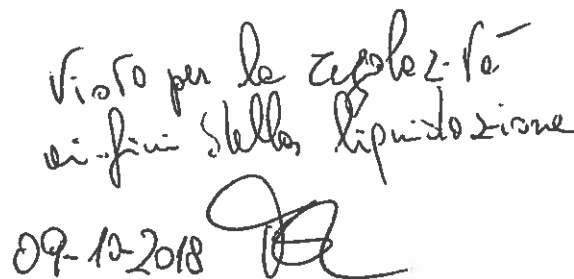 Visto per la regolarità
ai fini della liquidazione
09-10-2018